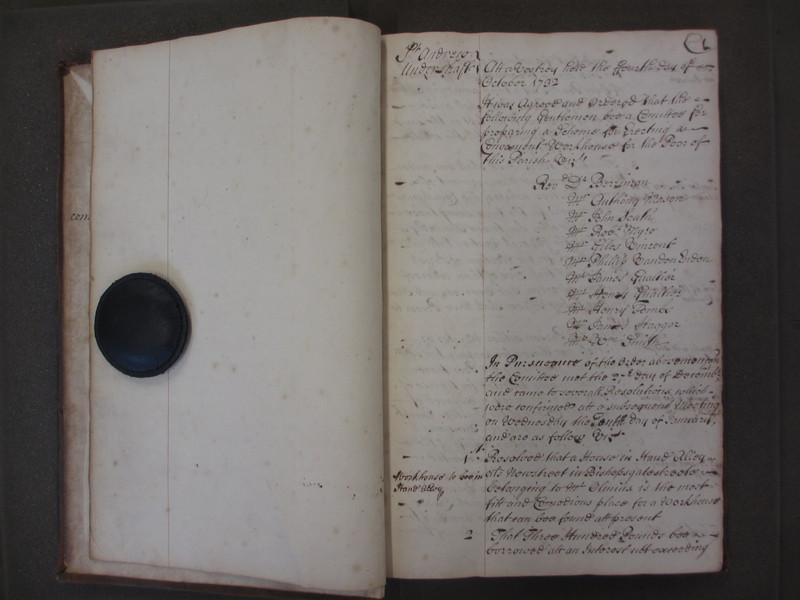 St. Andrew
Undershaft
1
At a Vestry held the ffourth day of
October 1732
It was Agreed and Ordered that the
following Gentlemen bee a Comittee for
preparing a Scheme for Erecting a
Convenient Workhouse for the Poor of
this Parish Vizt.
Revd. Dr. Berriman
Mr. Anthony Mason
Mr. John
Mr. Robt.
Mr. Giles Vincent
Mr. Phillip Vandenenden
Mr. James Gualtier
Mr. Henry Gualtier
Mr. Henry Tombs
Mr. James
Mr. Wm. Smith
In Pursueance of the Order abovemencon'd
the Comittee met the 27th. day of Decemb
and came to severall Resolutions, which
were confirmed att a subsequent Meeting
on Wednesday the Tenth day of January,
and are as follow Vizt.
1st. Resolved that a House in Hand Alley
als Newstreet in Bishopsgatestreete
Workhouse to bee in
Hand Alley
belonging to Mr. Olmius is the most
fitt and Comodious place for a Workhouse
that can bee found att present
2 That Three Hundred Pounds bee
borrowed att an Interest not exceeding